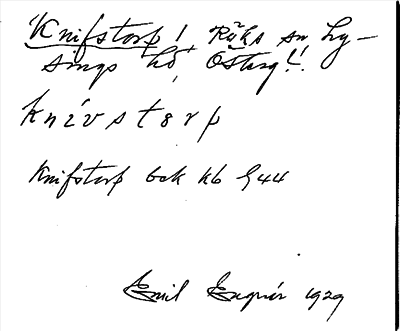 Knifstorp 1 Röks sn Ly-
sings hd, Österg!.
knivstorp
Knifstorp bck kb 944
Emil Enqvir 1929